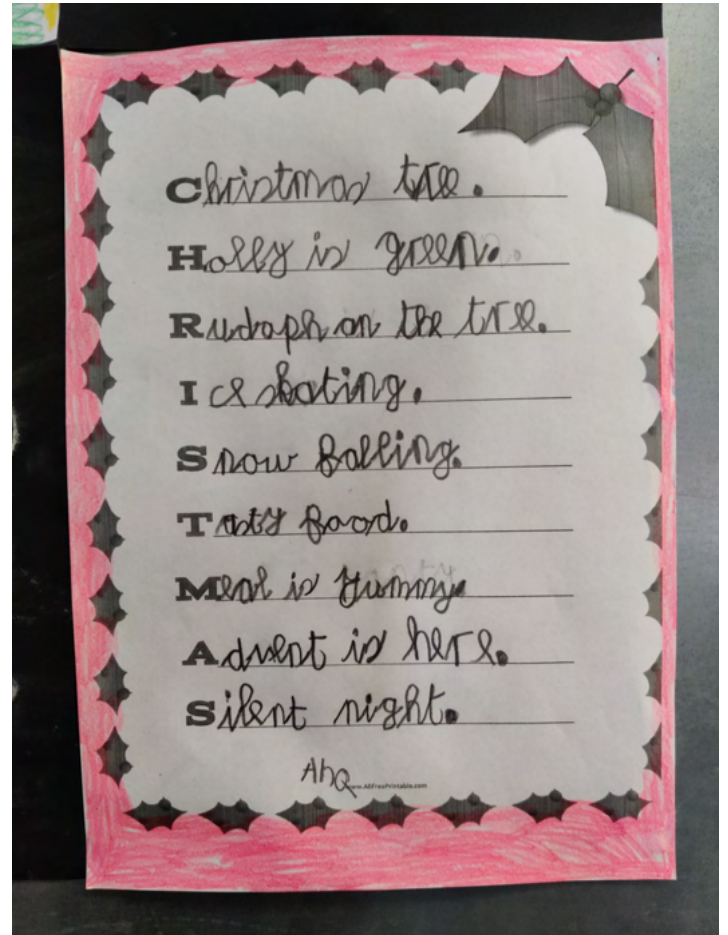 Christmas tree.
Holly is green.
Rudaph on the tree.
Ice skating.
Snow falling.
Tasty food.
Meal is yummy.
Advent is here.
Silent night.
www.AllFreePrintable.com